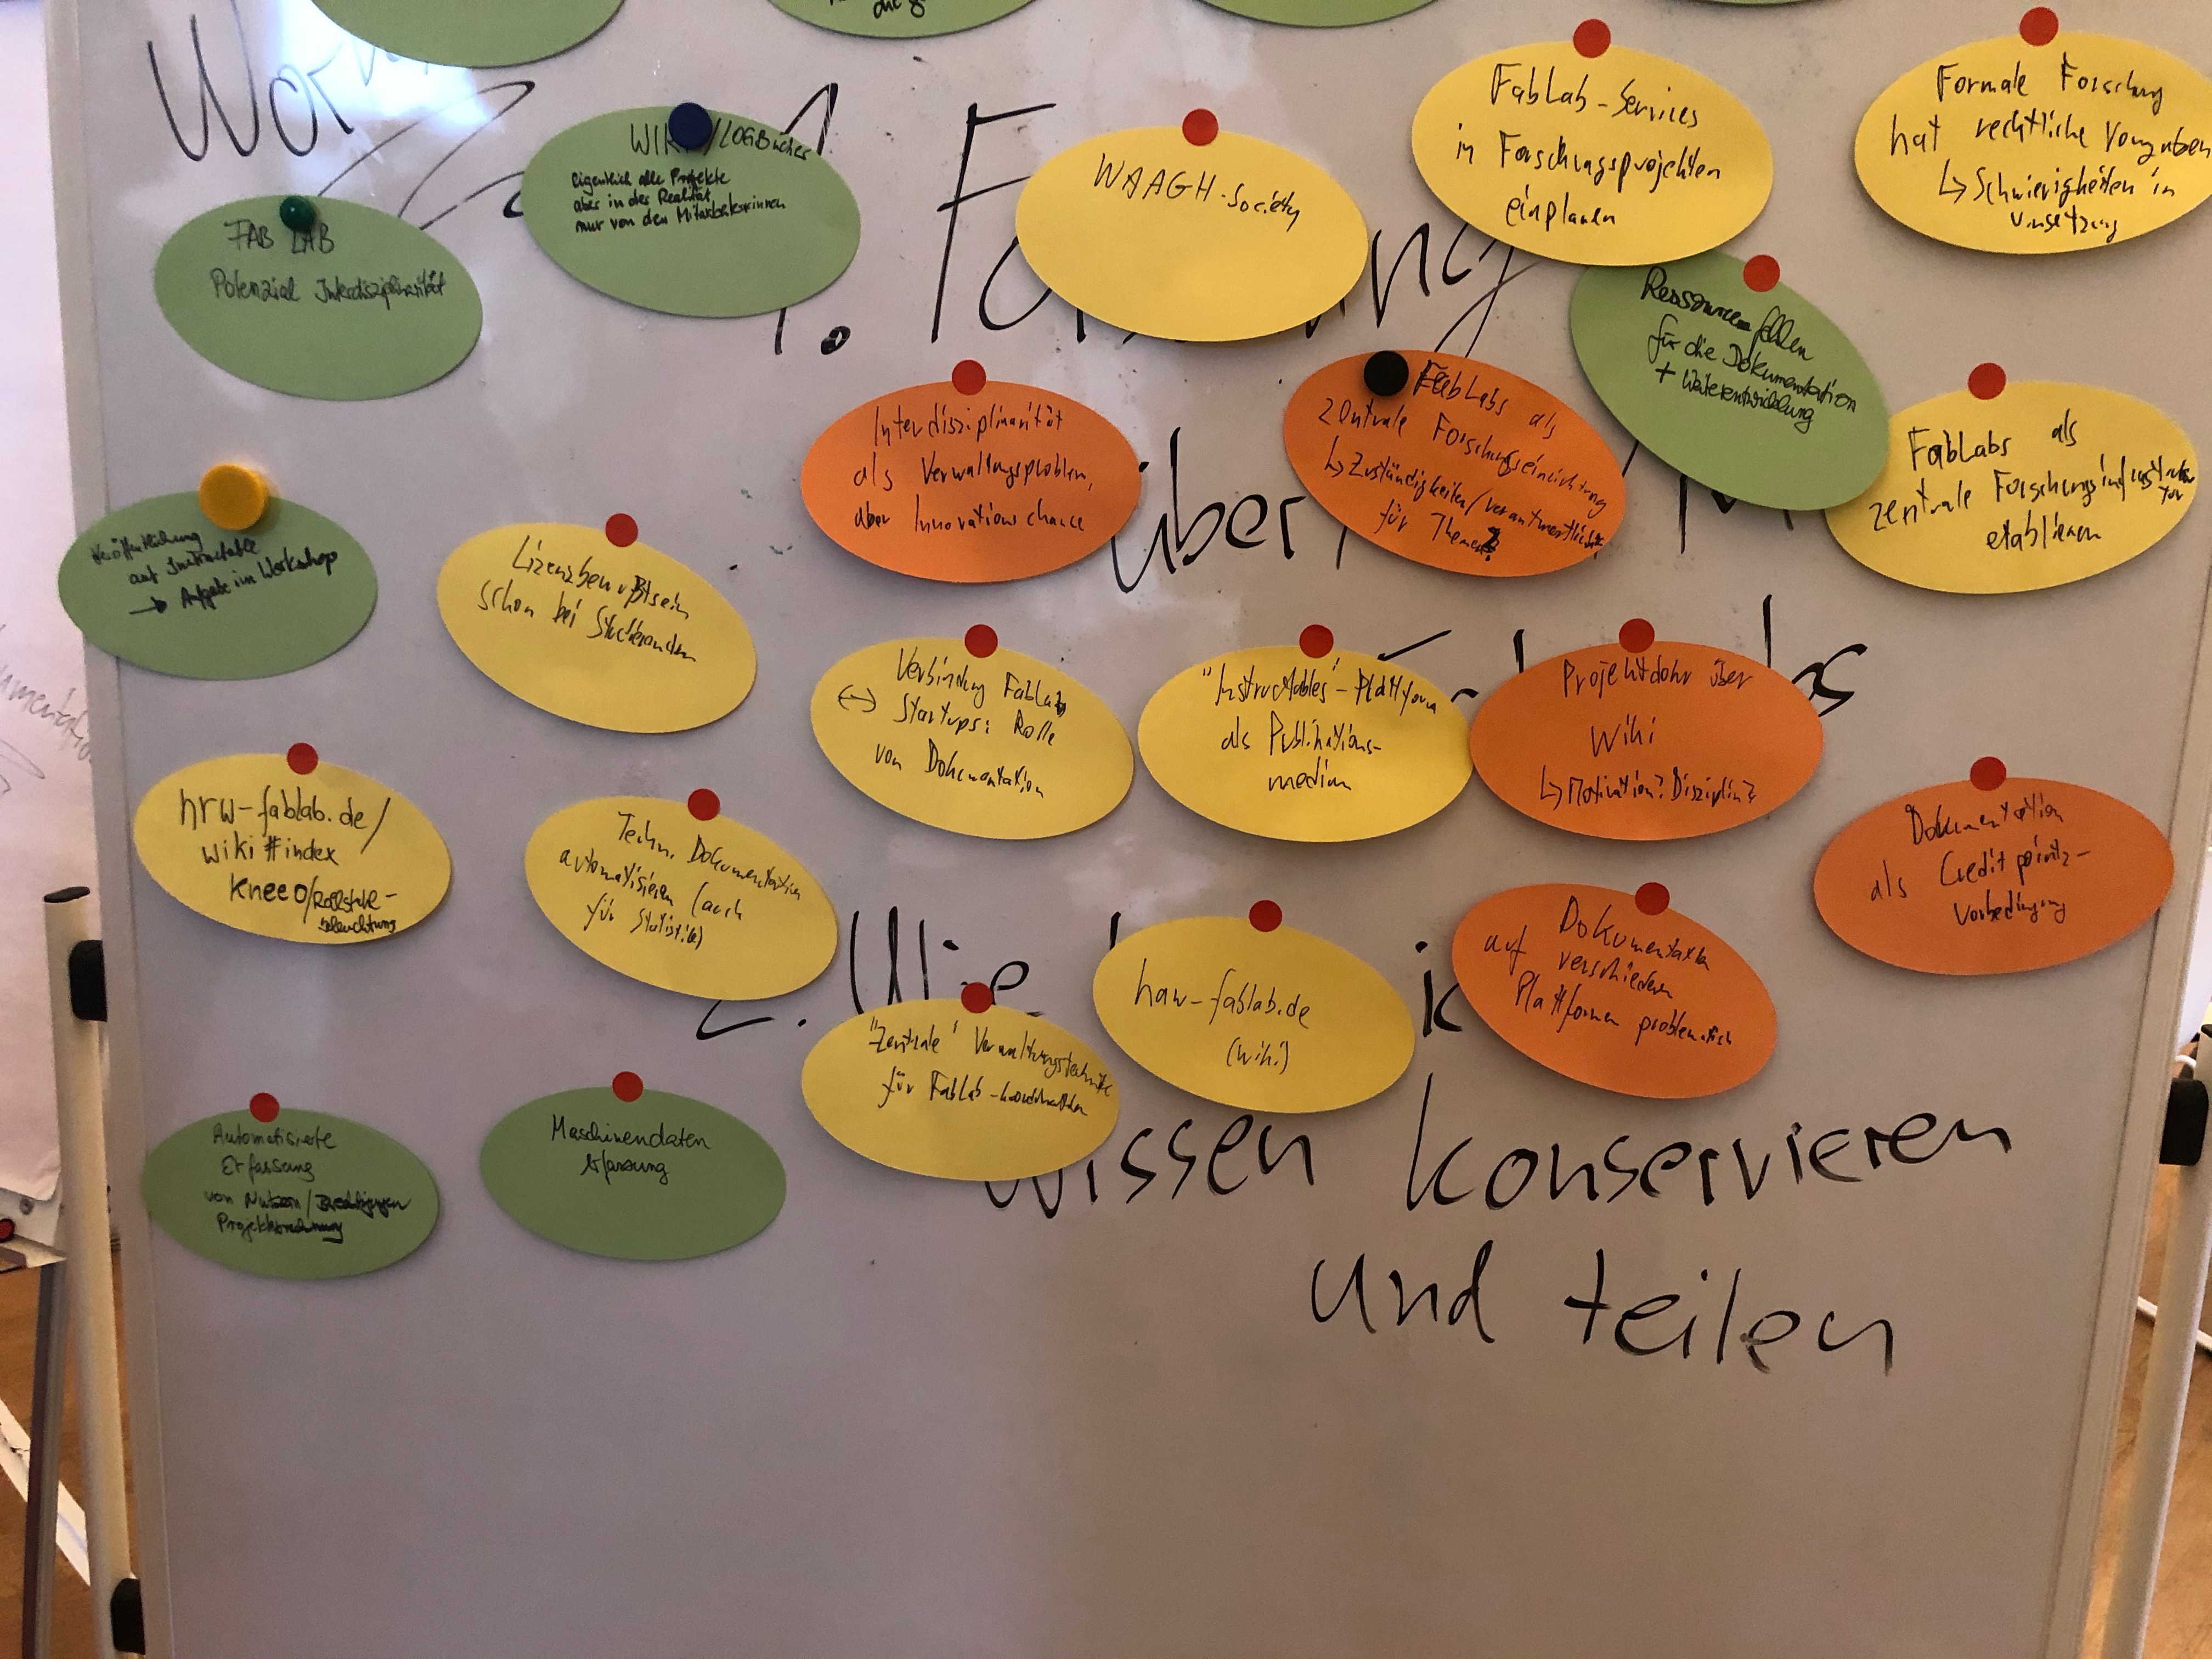 WIKI/LOGBücher
eigentlich alle Projekte
aber in der Realität
nur von den Mitarbeiterinnen
FAB LAB
Potenzial Interdisziplinarität
WAAGH-Society
FabLab-Services
in Forschungsprojekten
einplanen
Formale Forschung
hat rechtliche Vorgaben
↳ Schwierigkeiten in
Umsetzung
1. Fo
ng
Ressourcen fehlen
für die Dokumentation
+ Weiterentwicklung
Interdisziplinarität
als Verwaltungsproblem,
aber Innovationschance
FabLabs als
zentrale Forschungseinrichtung
↳ Zuständigkeiten/Verantwortlichk.
für Themen?
FabLabs als
zentrale Forschungsinfrastruktur
etablieren
über
Veröffentlichung
auf Instructable
→ Aufgabe im Workshop
Lizenzbewußtsein
schon bei Studierenden
Verbindung FabLab
↔ Startups: Rolle
von Dokumentation
"Instructables"-Plattform
als Publikations-
medium
Projektdoku über
Wiki
↳ Motivation? Disziplin?
hrw-fablab.de/
wiki#index
Kneeo/Rollstuhl-
beleuchtung
Techn. Dokumentation
automatisieren (auch
für Statistik)
Dokumentation
als Creditpoints-
Vorbedingung
2. Wie
"Zentrale" Verwaltungstechnik
für FabLab-
haw-fablab.de
(Wiki)
Dokumentation
auf verschiedenen
Plattformen problematisch
Automatisierte
Erfassung
von Nutzern/
Maschinendaten
erfassung
wissen konservieren
und teilen